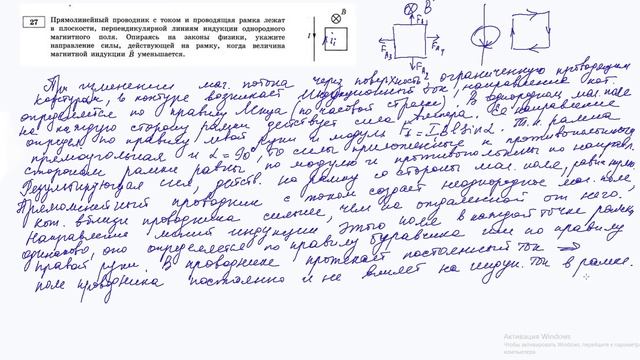 27
Прямолинейный проводник с током и проводящая рамка лежат
в плоскости, перпендикулярной линиям индукции однородного
магнитного поля. Опираясь на законы физики, укажите
направление силы, действующей на рамку, когда величина
магнитной индукции B⃗ уменьшается.
B⃗
I
При изменении маг. потока через поверхность, ограниченную проводящим
контуром, в контуре возникает индукционный ток, направление кот.
определяется по правилу Ленца (по часовой стрелке). В однородном маг. поле
на каждую сторону рамки действует сила Ампера. Её направление
определ. по правилу левой руки и модуль F = IBl sin α. Т.к. рамка
прямоугольная и α = 90°, то силы приложенные к противоположным
сторонам рамки равны по модулю и противоположны по направл.
Результирующая сил, действ. на рамку со стороны маг. поля, равна нулю.
Прямолинейный проводник с током создаёт неоднородное маг. поле,
кот. вблизи проводника сильнее, чем на отдалении от него.
Направление магнит индукции этого поля в каждой точке рамки
одинаково, оно определяется по правилу буравчика или по правилу
правой руки. В проводнике протекает постоянный ток ⇒
поле проводника постоянно и не влияет на индук. ток в рамке.
Активация Windows
Чтобы активировать Windows, перейдите к параметрам
компьютера.